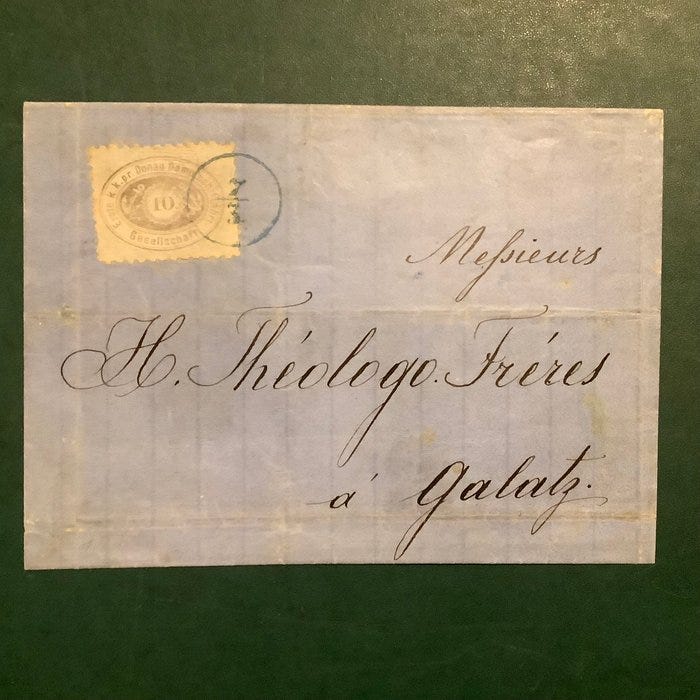 Erste k.k.pr. Donau Dampfschiffahrt
Gesellschaft
10
Meſsieurs
H. Théologo. Fréres
á Galatz.